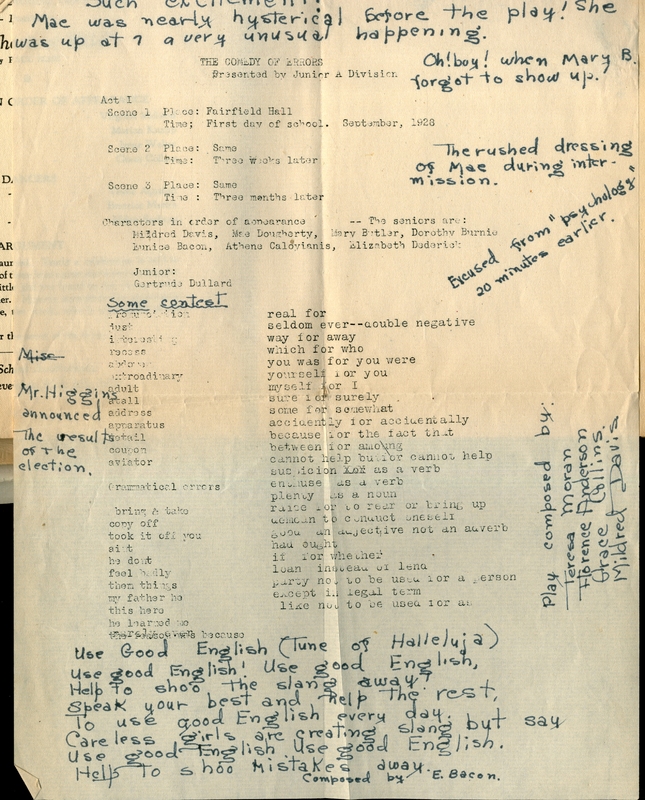 Such excitement!
Mae was nearly hysterical before the play! She
was up at 7 a very unusual happening.
Oh! boy! when Mary B.
forgot to show up.
THE COMEDY OF ERRORS
Presented by Junior A Division
Act I
Scene 1 Place: Fairfield Hall
Time; First day of school. September, 1928
Scene 2 Place: Same
Time: Three weeks later
Scene 3 Place: Same
Time : Three months later
The rushed dressing
of Mae during inter-
mission.
Excused from "psychology"
20 minutes earlier.
Characters in order of appearance -- The seniors are:
Mildred Davis, Mae Dougherty, Mary Butler, Dorothy Burnie
Eunice Bacon, Athene Caloyianis, Elizabeth Dederick
Junior:
Gertrude Dullard
Some contest
real for
just seldom ever--double negative
interesting way for away
recess which for who
you was for you were
yourself for you
adult myself for I
stall sure for surely
address some for somewhat
apparatus accidently for accidentally
detail because for the fact that
coupon between for among
aviator cannot help but for cannot help
suspicion XXX as a verb
Grammatical errors enthuse as a verb
plenty as a noun
bring & take raise for to rear or bring up
copy off demean to conduct oneself
took it off you good an adjective not an adverb
aint had ought
he dont if for whether
feel badly loan instead of lend
them things party not to be used for a person
my father he except in legal term
this here like not to be used for as
he learned me
because
Mise
Mr. Higgins
announced
The results
of the
election.
Play composed by:
Teresa Moran
Florence Anderson
Grace Collins.
Mildred Davis
Use Good English (Tune of Halleluja)
Use good English! Use good English,
Help to shoo the slang away?
Speak your best and help the rest,
To use good English every day.
Careless girls are creating slang but say
Use good English Use good English.
Help To shoo mistakes away.
Composed by E. Bacon.